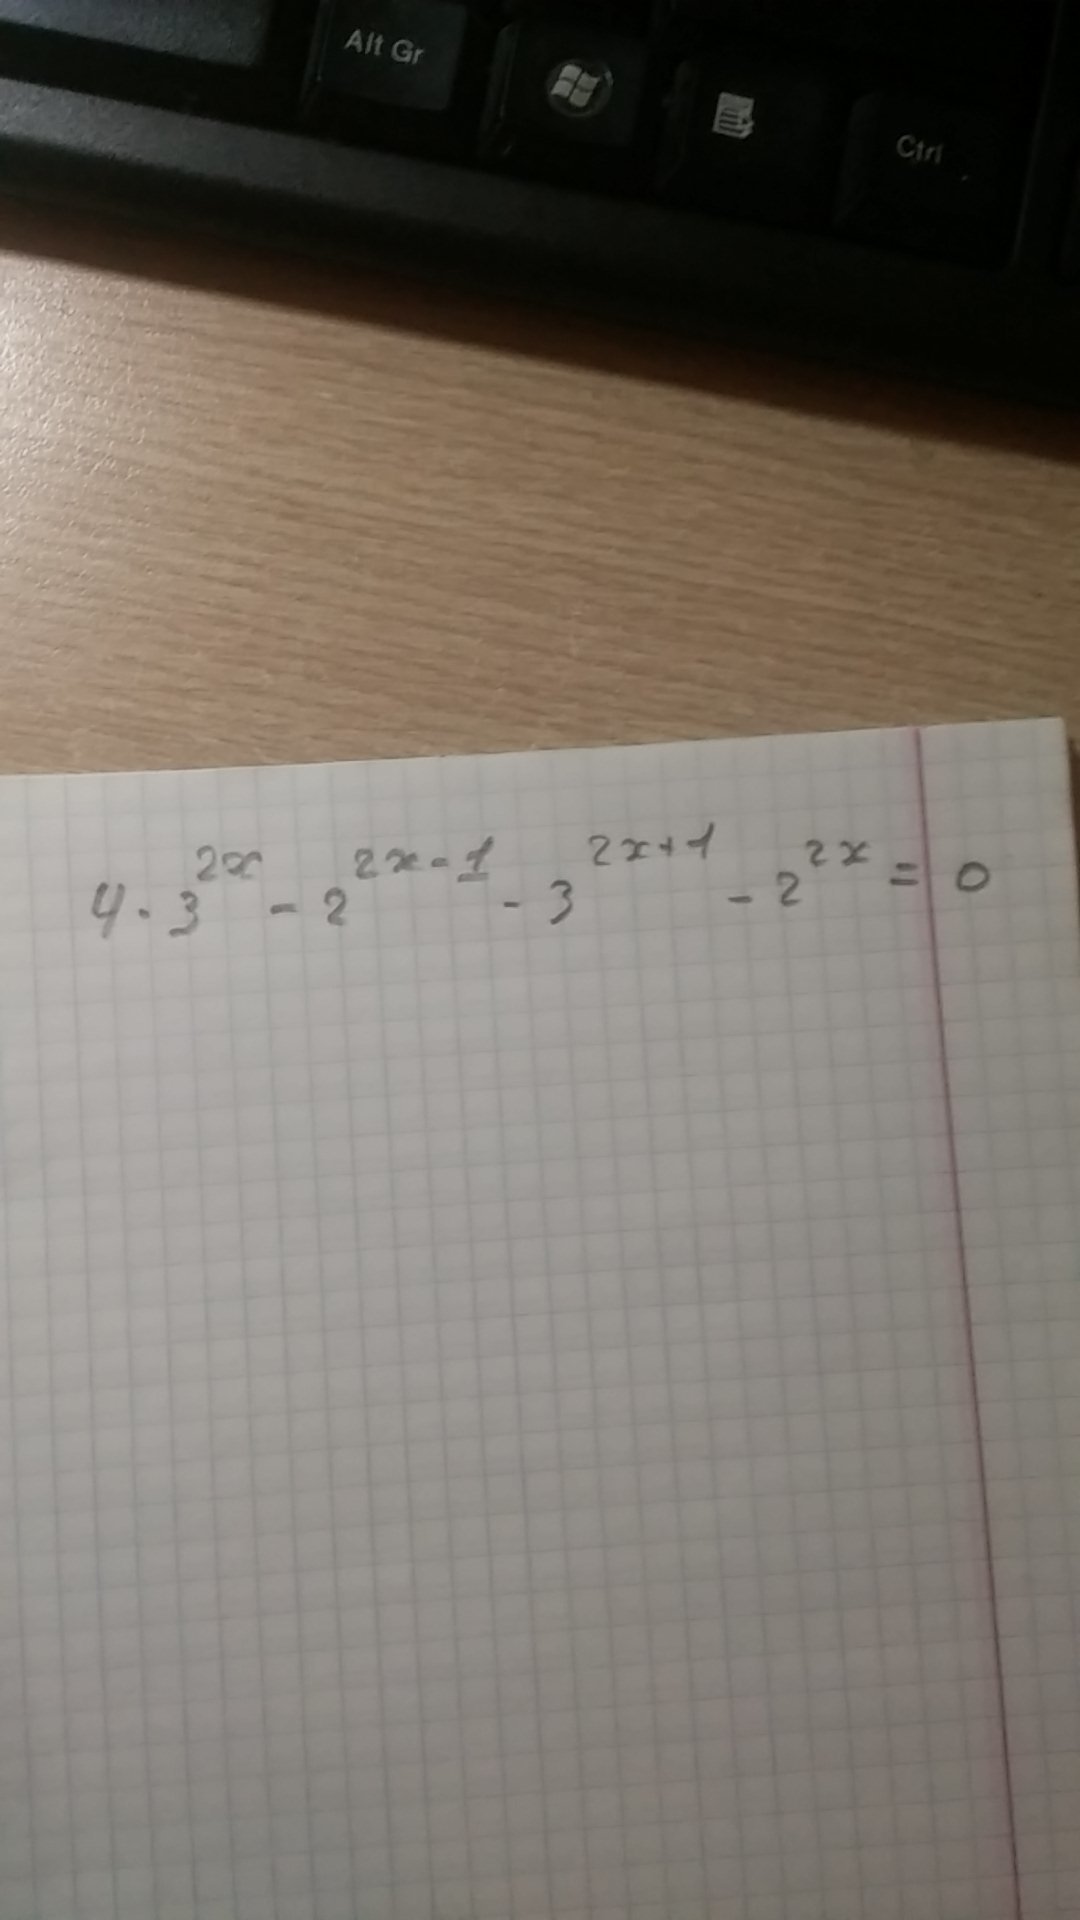 Alt Gr
Ctrl
4 · 3^{2x} - 2^{2x-1} - 3^{2x+1} - 2^{2x} = 0